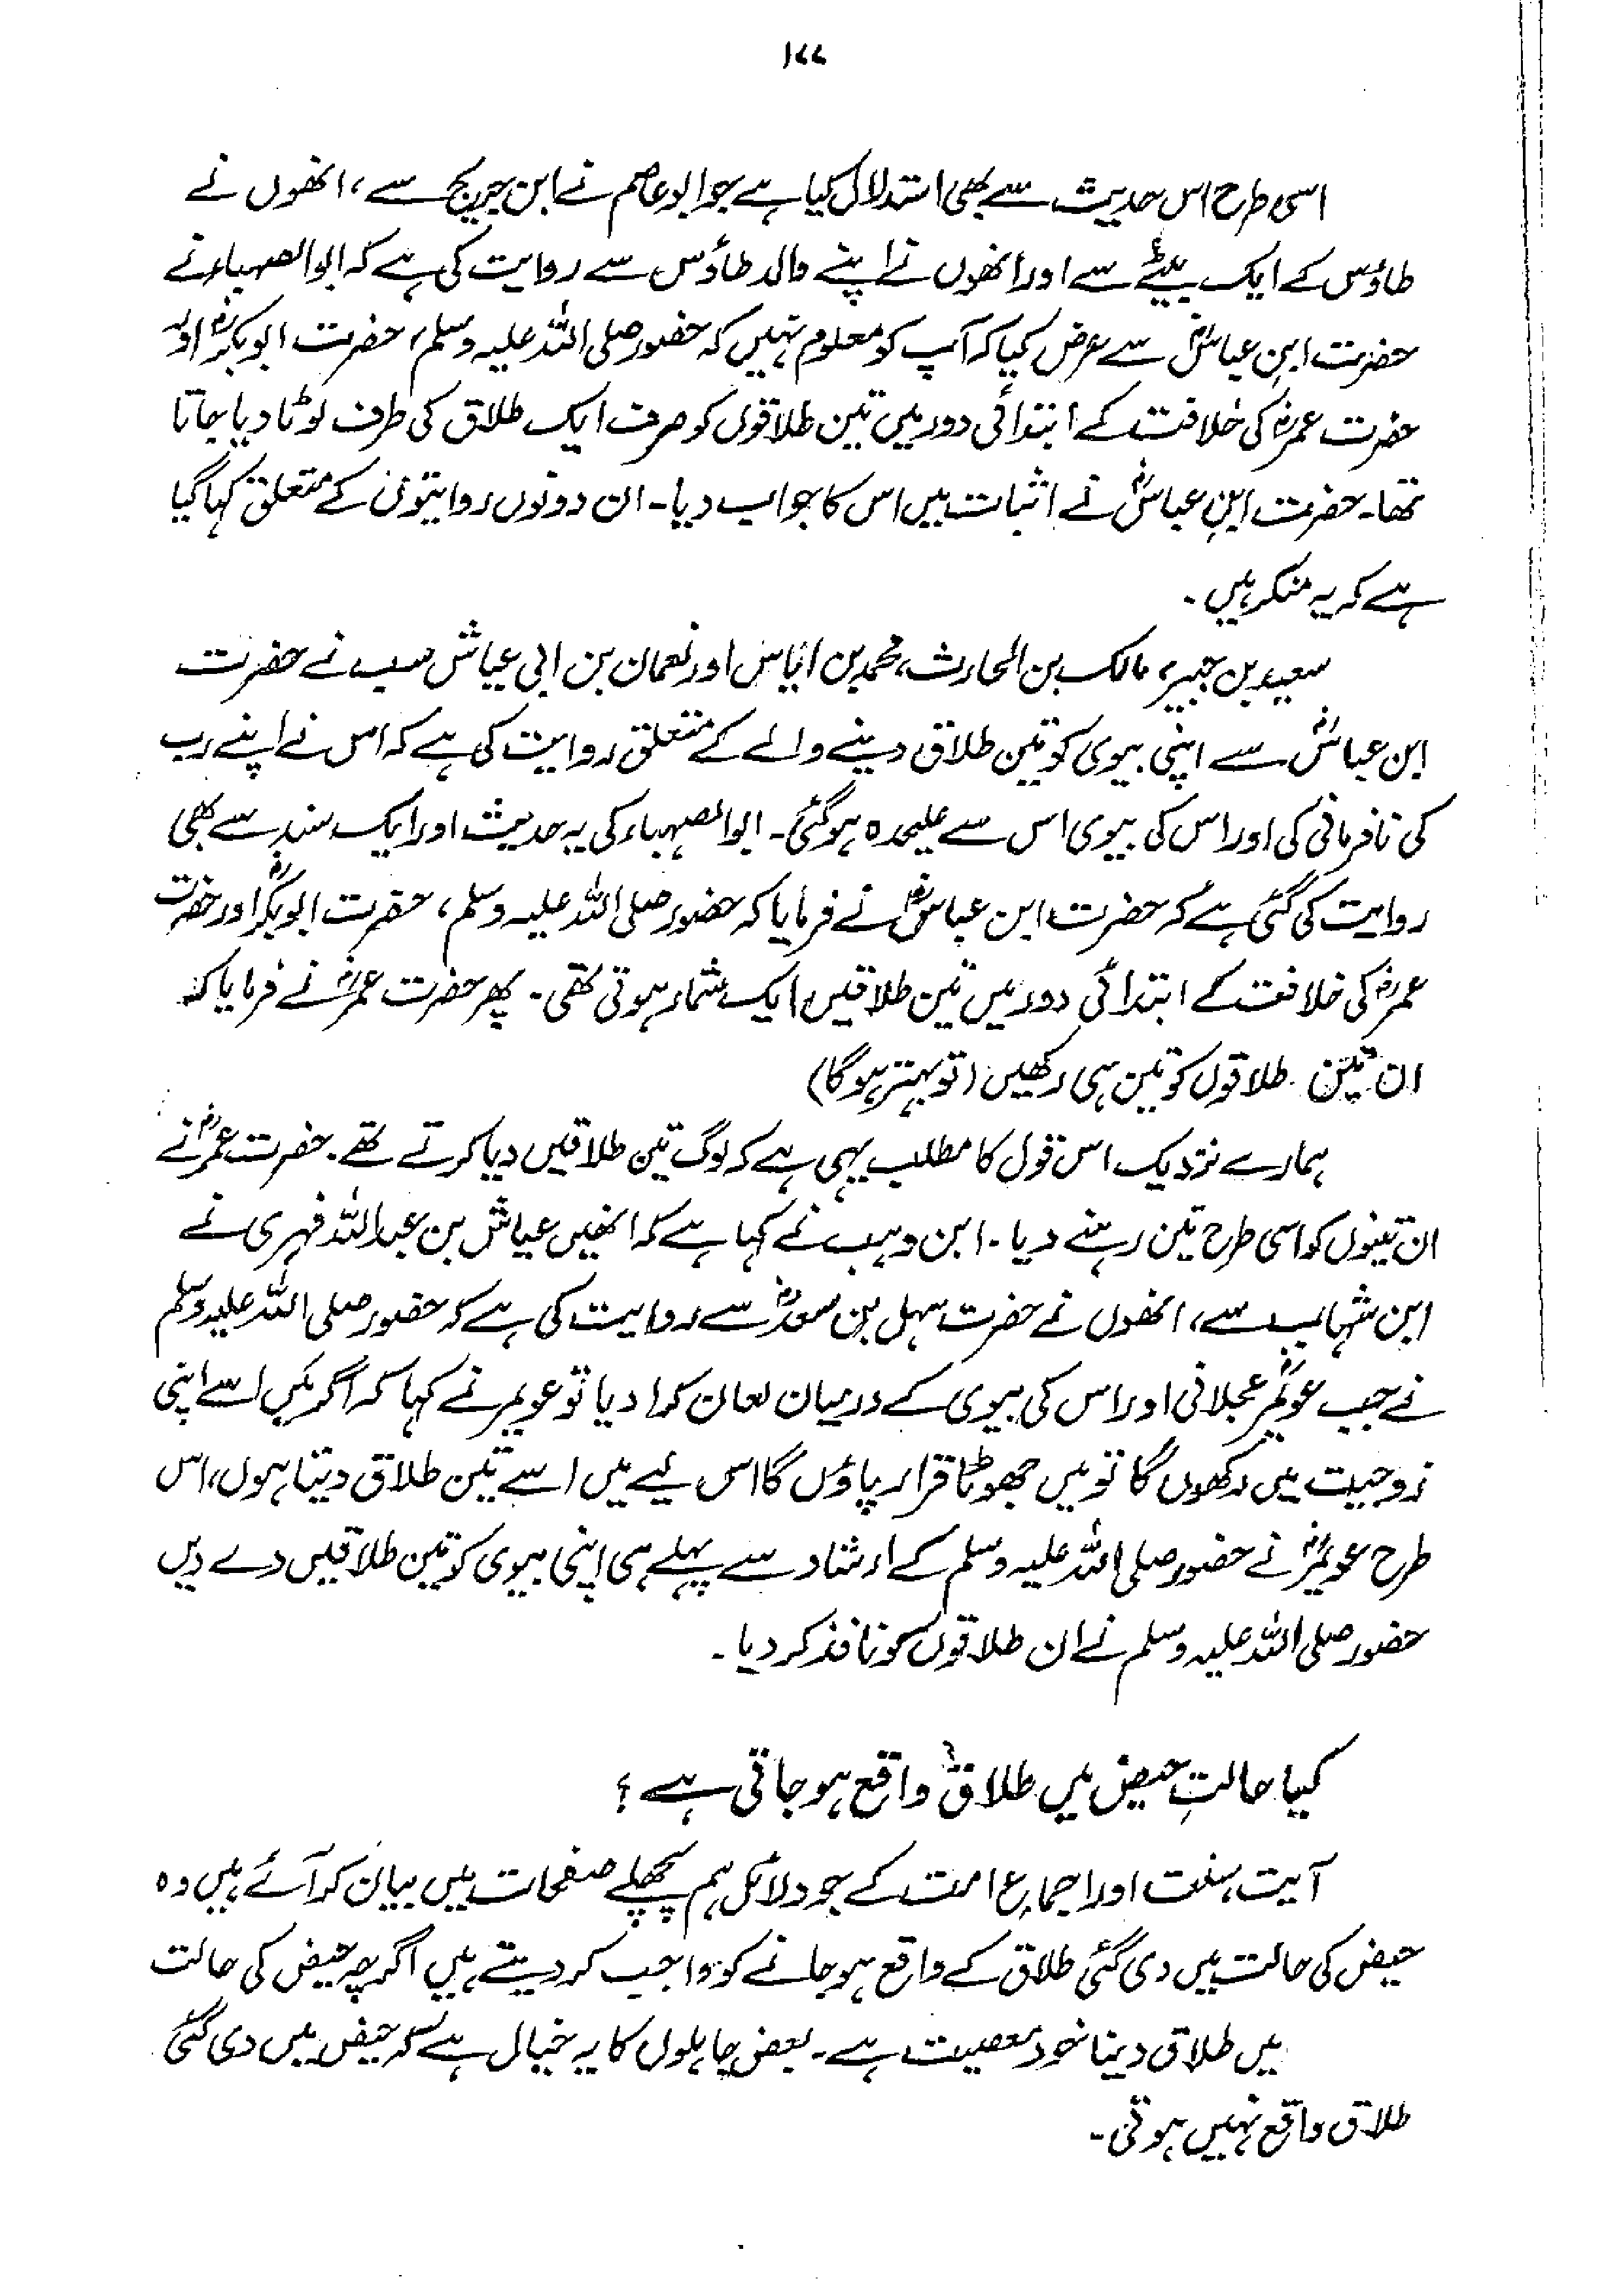 ۱۷۷
اسی طرح اس حدیث سے بھی استدلال کیا ہے جو ابوعاصم نے ابن جریج سے، انھوں نے
طاؤس کے ایک بیٹے سے اور انھوں نے اپنے والد طاؤس سے روایت کی ہے کہ ابوالصہباء نے
حضرت ابنِ عباسؓ سے عرض کیا کہ آپ کو معلوم نہیں کہ حضور صلی اللہ علیہ وسلم، حضرت ابوبکرؓ اور
حضرت عمرؓ کی خلافت کے ابتدائی دور میں تین طلاقوں کو صرف ایک طلاق کی طرف لوٹا دیا جاتا
تھا۔ حضرت ابنِ عباسؓ نے اثبات میں اس کا جواب دیا۔ ان دونوں روایتوں کے متعلق کہا گیا
ہے کہ یہ منکر ہیں۔
سعید بن جبیر، مالک بن الحارث، محمد بن ایاس اور نعمان بن ابی عیاش سب نے حضرت
ابن عباسؓ سے اپنی بیوی کو تین طلاق دینے والے کے متعلق روایت کی ہے کہ اس نے اپنے رب
کی نافرمانی کی اور اس کی بیوی اس سے علیحدہ ہوگئی۔ ابوالصہباء کی یہ حدیث اور ایک سند سے بھی
روایت کی گئی ہے کہ حضرت ابن عباسؓ نے فرمایا کہ حضور صلی اللہ علیہ وسلم، حضرت ابوبکرؓ اور حضرت
عمرؓ کی خلافت کے ابتدائی دور میں تین طلاقیں ایک شمار ہوتی تھی۔ پھر حضرت عمرؓ نے فرمایا کہ
ان تین طلاقوں کو تین ہی رکھیں (تو بہتر ہوگا)
ہمارے نزدیک اس قول کا مطلب یہی ہے کہ لوگ تین طلاقیں دیا کرتے تھے۔ حضرت عمرؓ نے
ان تینوں کو اسی طرح تین رہنے دیا۔ ابن وہب نے کہا ہے کہ انھیں عیاش بن عبداللہ فہری نے
ابن شہاب سے، انھوں نے حضرت سہل بن سعدؓ سے روایت کی ہے کہ حضور صلی اللہ علیہ وسلم
نے جب عویمرؓ عجلانی اور اس کی بیوی کے درمیان لعان کرا دیا تو عویمر نے کہا کہ اگر میں اسے اپنی
زوجیت میں رکھوں گا تو میں جھوٹا قرار پاؤں گا اس لیے میں اسے تین طلاق دیتا ہوں، اس
طرح عویمرؓ نے حضور صلی اللہ علیہ وسلم کے ارشاد سے پہلے ہی اپنی بیوی کو تین طلاقیں دے دیں
حضور صلی اللہ علیہ وسلم نے ان طلاقوں کو نافذ کر دیا۔
کیا حالتِ حیض میں طلاق واقع ہو جاتی ہے؟
آیت، سنت اور اجماعِ امت کے جو دلائل ہم پچھلے صفحات میں بیان کر آئے ہیں وہ
حیض کی حالت میں دی گئی طلاق کے واقع ہو جانے کو واجب کر دیتے ہیں اگرچہ حیض کی حالت
میں طلاق دینا خود معصیت ہے۔ بعض جاہلوں کا یہ خیال ہے کہ حیض میں دی گئی
طلاق واقع نہیں ہوتی۔